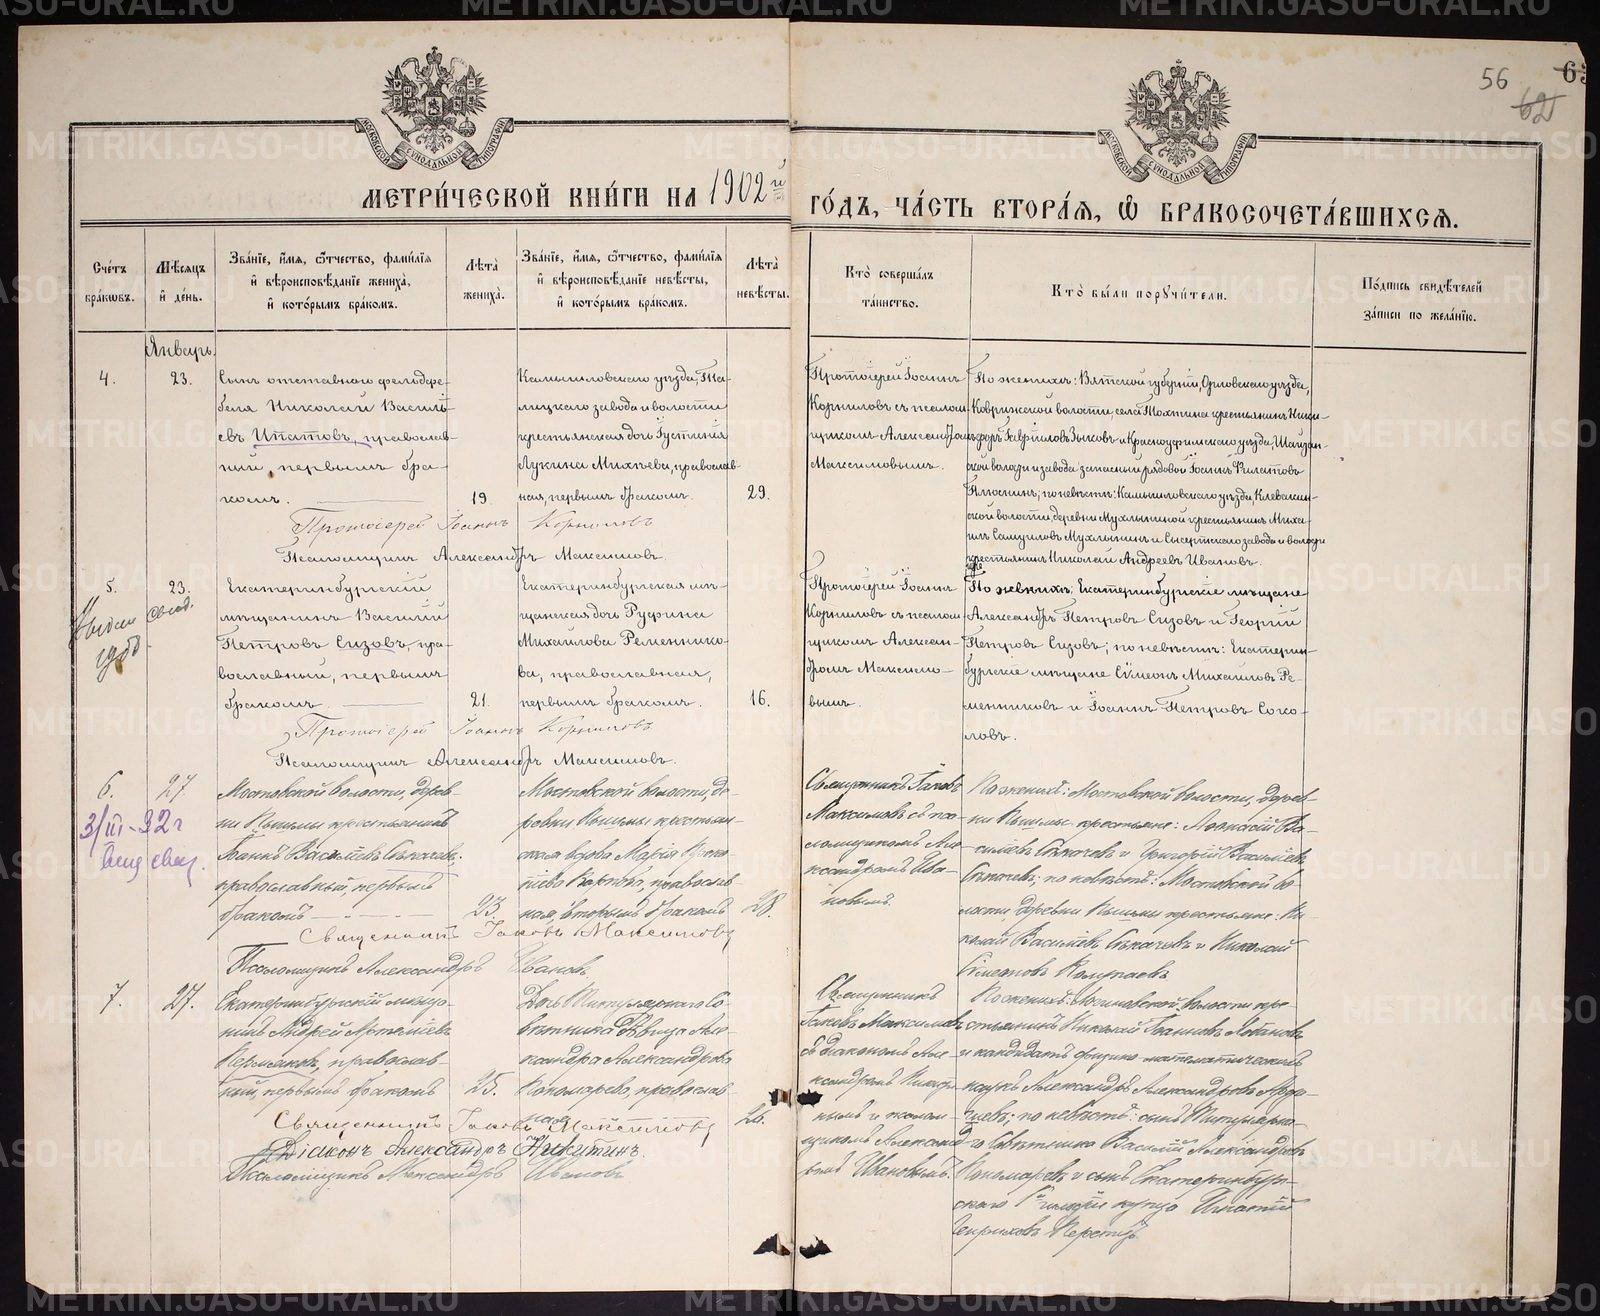 56
62
МЕТРИ́ЧЕСКОЙ КНИ́ГИ НА 1902 й ГО́ДЪ, ЧА́СТЬ ВТОРА́Ѧ, Ѽ БРАКОСОЧЕТА́ВШИХСѦ.
Сче́тъ бра́кѡвъ.
Мѣ́сѧцъ и҆ де́нь.
Зва́нїе, и҆́мѧ, ѻ҆́тчество, фами́лїѧ
и҆ вѣроисповѣ́данїе жениха̀,
и҆ кото́рымъ бра́комъ.
Лѣ́та жениха̀.
Зва́нїе, и҆́мѧ, ѻ҆́тчество, фами́лїѧ
и҆ вѣроисповѣ́данїе невѣ́сты,
и҆ кото́рымъ бра́комъ.
Лѣ́та невѣ́сты.
Кто̀ соверша́лъ
та́инство.
Кто̀ бы́ли порꙋчи́тели.
По́дпись свидѣ́телей
за́писи по жела́нїю.
Январь.
4.
23.
Сынъ отставного фельдфе-
беля Николай Василь-
евъ Ипатовъ, православ-
ный, первымъ бра-
комъ.
19.
Камышловскаго уѣзда, Та-
лицкаго завода и волости
крестьянская дочь Іустинія
Лукина Михѣева, православ-
ная, первымъ бракомъ.
29.
Протоіерей Іоаннъ
Корниловъ съ псалом-
щикомъ Александромъ
Максимовымъ.
По женихѣ: Вятской губерніи, Орловскаго уѣзда,
Ковригской волости, села Тохтина крестьянинъ Ники-
форъ Гавриловъ Зыковъ и Красноуфимскаго уѣзда, Шайтан-
ской волости и завода запасный рядовой Іоаннъ Филатовъ
Плюснинъ; по невѣстѣ: Камышловскаго уѣзда, Клевакин-
ской волости, деревни Мухлыниной крестьянинъ Миха-
илъ Самуиловъ Мухлынинъ и Сысертскаго завода и волости
крестьянинъ Николай Андреевъ Ивановъ.
Протоіерей Іоаннъ Корниловъ
Псаломщикъ Александръ Максимовъ.
5.
23.
Выдан свид.
Екатеринбургскій
мѣщанинъ Василій
Петровъ Сизовъ, пра-
вославный, первымъ
бракомъ.
21.
Екатеринбургская мѣ-
щанская дочь Руфина
Михайлова Ременнико-
ва, православная,
первымъ бракомъ.
16.
Протоіерей Іоаннъ
Корниловъ съ псалом-
щикомъ Алексан-
дромъ Максимо-
вымъ.
По женихѣ: Екатеринбургскіе мѣщане
Александръ Петровъ Сизовъ и Георгій
Петровъ Сизовъ; по невѣстѣ: Екатерин-
бургскіе мѣщане Сѵмеонъ Михайловъ Ре-
менниковъ и Іоаннъ Петровъ Соко-
ловъ.
Протоіерей Іоаннъ Корниловъ
Псаломщикъ Александръ Максимовъ.
6.
27
3/III-32 г
Мостовской волости, дерев-
ни Пышмы крестьянинъ
Іоаннъ Васильевъ Сѣкачевъ,
православный, первымъ
бракомъ
23.
Мостовской волости, де-
ревни Пышмы крестьян-
ская вдова Марія
православ-
ная, вторымъ бракомъ
28.
Священникъ Іаковъ
Максимовъ съ пса-
ломщикомъ Але-
ксандромъ Ива-
новымъ.
По женихѣ: Мостовской волости, дерев-
ни Пышмы крестьяне: Ва-
сильевъ Сѣкачевъ и Григорій Васильевъ
Сѣкачевъ; по невѣстѣ: Мостовской во-
лости, деревни Пышмы крестьяне: Ни-
колай Васильевъ Сѣкачевъ и Николай
Священникъ Іаковъ Максимовъ
Псаломщикъ Александръ Ивановъ
7.
27.
Екатеринбургскій мѣща-
нинъ Андрей Артемьевъ
Пермяковъ, православ-
ный, первымъ бракомъ
25.
Дочь Титулярнаго Со-
вѣтника дѣвица Але-
ксандра Александрова
Пономарева, православ-
ная
26.
Священникъ
Іаковъ Максимовъ
съ діакономъ Але-
ксандромъ Никити-
нымъ и псалом-
щикомъ Александ-
ромъ Ивановымъ.
По женихѣ: волости кре-
стьянинъ Николай Іоанновъ Лобановъ
и кандидатъ физико-математическихъ
наукъ Александръ Александровъ
по невѣстѣ: сынъ Титулярна-
го Совѣтника Василій Александровъ
Пономаревъ и сынъ Екатеринбург-
скаго гильдіи купца Игнатій
Священникъ Іаковъ Максимовъ
Діаконъ Александръ Никитинъ.
Псаломщикъ Александръ Ивановъ
METRIKI.GASO-URAL.RU